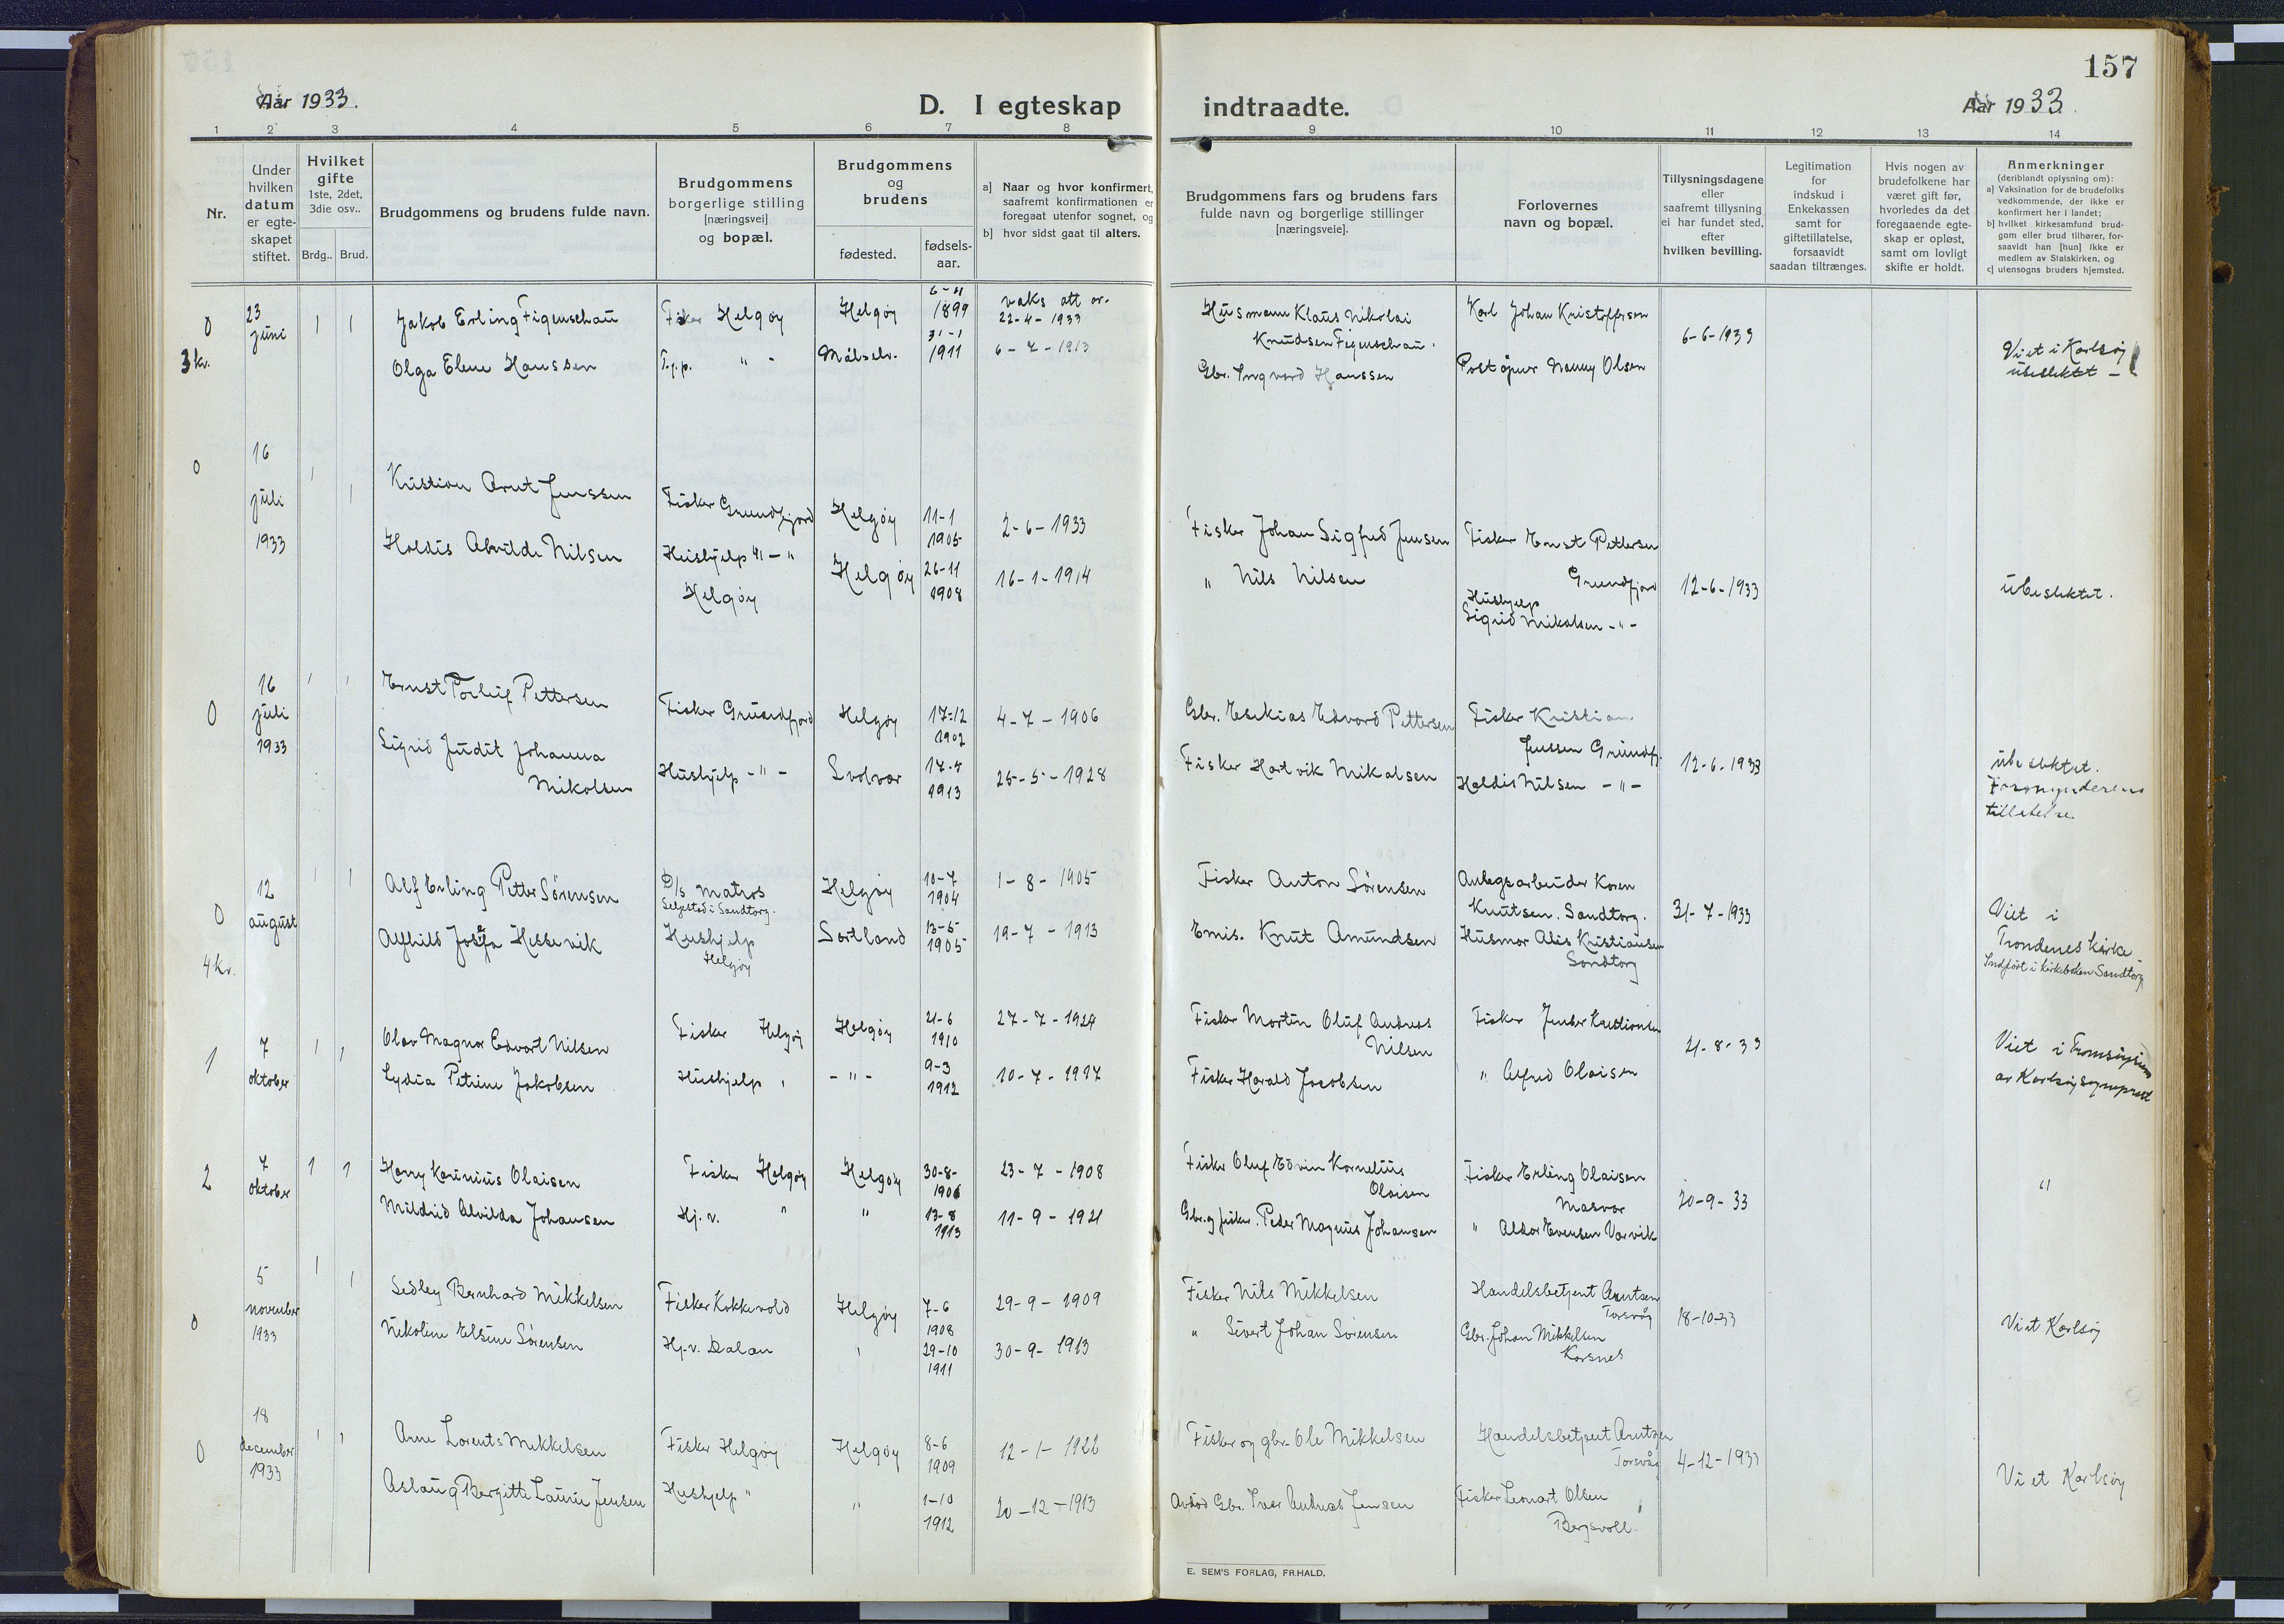 157
Aar 1933.
D. I egteskap indtraadte.
Aar 1933.
1 2 3 4 5 6 7 8 9 10 11 12 13 14
Nr.
Under hvilken datum er egte-skapet stiftet.
Hvilket gifte 1ste, 2det, 3die osv..
Brdg.. Brud.
Brudgommens og brudens fulde navn.
Brudgommens borgerlige stilling [næringsvei] og bopæl.
Brudgommens og brudens
fødested.
fødsels-aar.
a] Naar og hvor konfirmert, saafremt konfirmationen er foregaat utenfor sognet, og
b] hvor sidst gaat til alters.
Brudgommens fars og brudens fars fulde navn og borgerlige stillinger [næringsveie].
Forlovernes navn og bopæl.
Tillysningsdagene eller saafremt tillysning ei har fundet sted, efter hvilken bevilling.
Legitimation for indskud i Enkekassen samt for giftetillatelse, forsaavidt saadan tiltrænges.
Hvis nogen av brudefolkene har været gift før, hvorledes da det foregaaende egte-skap er opløst, samt om lovligt skifte er holdt.
Anmerkninger
(deriblandt oplysning om):
a) Vaksination for de brudefolks vedkommende, der ikke er konfirmert her i landet;
b) hvilket kirkesamfund brud-gom eller brud tilhører, for-saavidt han [hun] ikke er medlem av Statskirken, og
c) utensogns bruders hjemsted.
0 23 juni 1 1 Jakob Erling Figenschau Fisker Helgøy Helgøy 6-11 1899 vaks att av. 22-4-1933 Husmann Klaus Nikolai Knudsen Figenschau. Karl Johan Kristoffersen 6-6-1933 Viet i Karlsøy
3 kr. Olga Elene Hanssen T.j.p. " - Målselv. 31-1 1911 6-7-1913 Gbr. Ingvard Hanssen Poståpner Nanny Olsen ubeslektet -
0 16 juli 1933 1 1 Kristian Arnt Jenssen Fisker Grundfjord Helgøy 11-1 1905 2-6-1933 Fisker Johan Sigfred Jensen Fisker Ernst Pettersen Grundfjord 12-6-1933 ubeslektet.
Holdis Alvilde Nilsen Hushjelp "-" Helgøy Helgøy 26-11 1908 16-1-1914 " Nils Nilsen Hushjelp Sigrid Mikalsen -"-
0 16 juli 1933 1 1 Ernst Torleif Pettersen Fisker Grundfjord Helgøy 17-12 1902 4-7-1906 Gbr. Esekias Edvard Pettersen Fisker Kristian Jenssen Grundfj. 12-6-1933 ubeslektet.
Sigrid Judit Johanna Mikalsen Hushjelp -"- Svolvær 17-5 1913 25-5-1928 Fisker Hartvik Mikalsen Holdis Nilsen -"- Formynderens tillatelse.
0 12 august 1 1 Alf Erling Petter Sørensen D/s Matros Selpstad i Sandtorg. Helgøy 10-7 1904 1-8-1905 Fisker Anton Sörensen Anlegsarbeider Koren Knutsen. Sandtorg. 31-7-1933 Viet i Trondenes kirke -
4 kr. Alfhild Hessevik Hushjelp Helgøy Sortland 13-5 1905 19-7-1913 Emis. Knut Amundsen Husmor Alis Kristiansen Sandtorg Indført i kirkeboken Sandtorg
1 7 oktober 1 1 Olav Magnor Edvart Nilsen Fisker Helgøy Helgøy 21-6 1910 27-7-1924 Fisker Martin Oluf Andreas Nilsen Fisker Kristiansen 21-8-33 Viet i
Lydia Petrine Jakobsen Hushjelp " -"- 9-3 1912 10-7-1917 Fisker Harald Jacobsen " Alfred Olaisen av Karlsøy sogneprest
2 7 oktober 1 1 Harry Olaisen Fisker Helgøy Helgøy 30-8-1906 23-7-1908 Fisker Oluf Edvin Kornelius Olaisen Fisker Erling Olaisen Masvær 20-9-33 "
Mildrid Alvilda Johansen Hj.v. " " 13-8 1913 11-9-1921 Gbr. og fisker. Peder Magnus Johansen " Aldor Evensen Vorvik
0 5 november 1933 1 1 Sedley Bernhard Mikkelsen Fisker Kokkevold Helgøy 7-6 1908 29-9-1909 Fisker Nils Mikkelsen Handelsbetjent Arntsen Torsvåg 18-10-33 Viet Karlsøy
Nikoline Elsine Sörensen Hj.v. Dalan " 29-10 1911 30-9-1913 " Sivert Johan Sörensen Gbr. Johan Mikkelsen Korsnes
0 18 december 1933 1 1 Arne Lorents Mikkelsen Fisker Helgøy Helgøy 8-6 1909 12-1-1922 Fisker og gbr. Ole Mikkelsen Handelsbetjent Arntsen Torsvåg 4-12-1933 Viet Karlsøy
Aslaug Bergitte Jensen Hushjelp " " 1-10 1912 20-12-1913 Avdød Gbr. Iver Andreas Jensen Fisker Leonart Olsen Bergsvoll.
E. SEM'S FORLAG, FR.HALD.